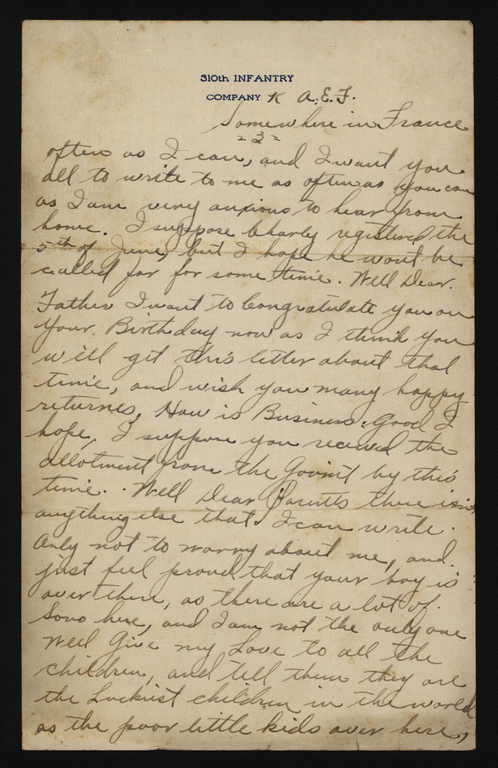 310th INFANTRY
COMPANY K A.E.F.
Somewhere in France
=3=
often as I can, and I want you
all to write to me as often as you can
as I am very anxious to hear from
home. I suppose Charley registered the
5th of June, but I hope he wont be
called for for some time. Well Dear.
Father I want to Congratulate you on
Your. Birthday now as I think You
will git this letter about that
time, and wish you many happy
returnes, How is Business. Good I
hope, I suppose you received the
allotment from the Govm't by this
time. . Well Dear Parents there isn't
anything else that I can write.
Only not to worry about me, and
just feel proud that your boy is
over there, as there are a lot of.
Sons here, and I am not the only one
Well Give my Love to all the
children, and tell them they are
the Luckiest children in the world
as the poor little kids over here,